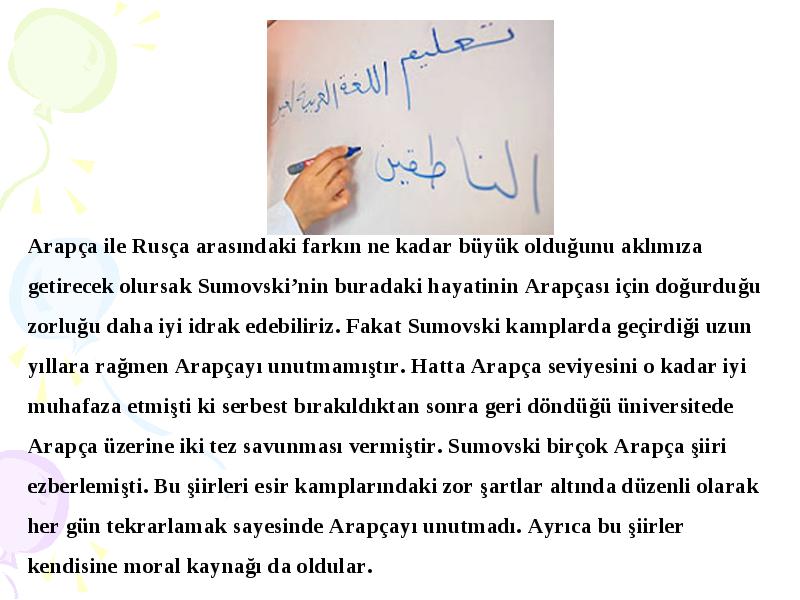 تعليم
اللغة العربية لغير
الناطقين
Arapça ile Rusça arasındaki farkın ne kadar büyük olduğunu aklımıza
getirecek olursak Sumovski’nin buradaki hayatinin Arapçası için doğurduğu
zorluğu daha iyi idrak edebiliriz. Fakat Sumovski kamplarda geçirdiği uzun
yıllara rağmen Arapçayı unutmamıştır. Hatta Arapça seviyesini o kadar iyi
muhafaza etmişti ki serbest bırakıldıktan sonra geri döndüğü üniversitede
Arapça üzerine iki tez savunması vermiştir. Sumovski birçok Arapça şiiri
ezberlemişti. Bu şiirleri esir kamplarındaki zor şartlar altında düzenli olarak
her gün tekrarlamak sayesinde Arapçayı unutmadı. Ayrıca bu şiirler
kendisine moral kaynağı da oldular.